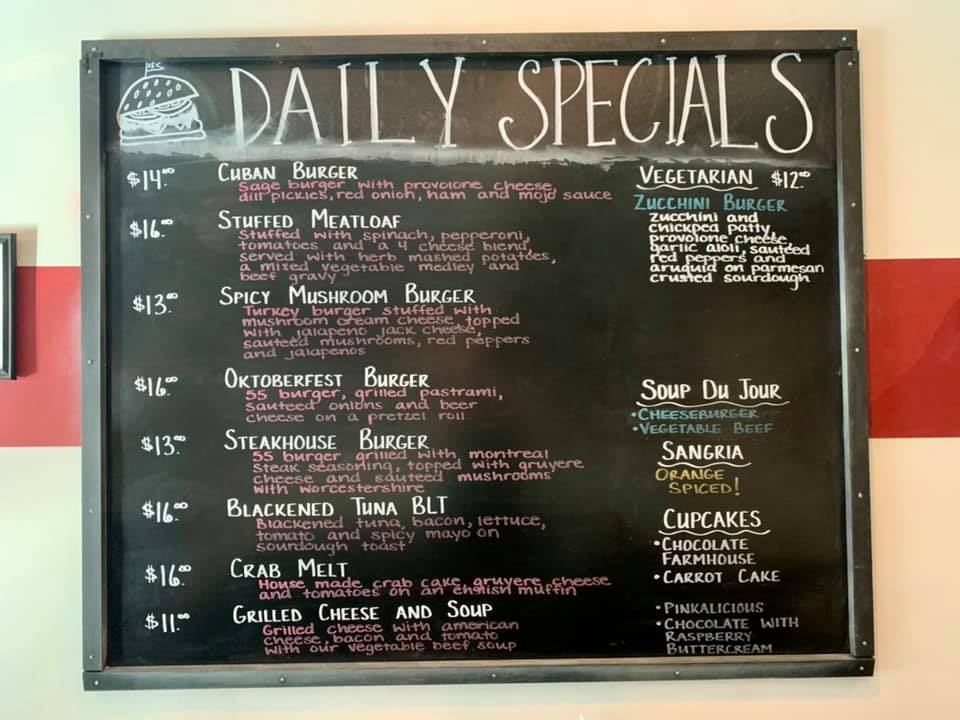 DAILY SPECIALS
$14.00 CUBAN BURGER
Sage burger with provolone cheese,
dill pickles, red onion, ham and mojo sauce
$16.00 STUFFED MEATLOAF
Stuffed with spinach, pepperoni,
tomatoes and a 4 cheese blend,
served with herb mashed potatoes,
a mixed vegetable medley and
beef gravy
$13.00 SPICY MUSHROOM BURGER
Turkey burger stuffed with
mushroom cream cheese, topped
with jalapeno jack cheese,
sauteed mushrooms, red peppers
and jalapenos
$16.00 OKTOBERFEST BURGER
55 burger, grilled pastrami,
sauteed onions and beer
cheese on a pretzel roll
$13.00 STEAKHOUSE BURGER
55 burger grilled with montreal
steak seasoning, topped with gruyere
cheese and sauteed mushrooms
with worcestershire
$16.00 BLACKENED TUNA BLT
Blackened tuna, bacon, lettuce,
tomato and spicy mayo on
sourdough toast
$16.00 CRAB MELT
House made crab cake, gruyere cheese
and tomatoes on an english muffin
$11.00 GRILLED CHEESE AND SOUP
Grilled cheese with american
cheese, bacon and tomato
with our vegetable beef soup
VEGETARIAN $12.00
ZUCCHINI BURGER
zucchini and
chickpea patty,
provolone cheese,
garlic aioli, sauteed
red peppers and
arugula on parmesan
crusted sourdough
SOUP DU JOUR
•CHEESEBURGER
•VEGETABLE BEEF
SANGRIA
ORANGE
SPICED!
CUPCAKES
•CHOCOLATE
FARMHOUSE
•CARROT CAKE
•PINKALICIOUS
•CHOCOLATE WITH
RASPBERRY
BUTTERCREAM